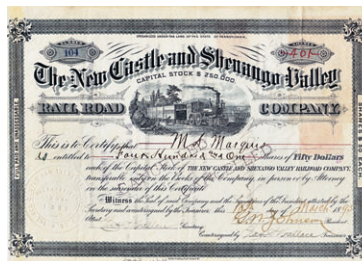 ORGANIZED UNDER THE LAWS OF THE STATE OF PENNSYLVANIA.
NUMBER
104
SHARES
401
The New Castle and Shenango Valley
CAPITAL STOCK $ 250,000.
RAILROAD
COMPANY.
This is to Certify that M. S. Marquis
is entitled to Four Hundred & One Shares of Fifty Dollars
each of the Capital Stock of THE NEW CASTLE AND SHENANGO VALLEY RAILROAD COMPANY,
transferable only on the Books of the Company, in person or by Attorney
on the surrender of this Certificate
Witness the Seal of said Company and the signature of the President attested by the
Secretary and countersigned by the Treasurer this March
Johnson President
Attest Secretary
Countersigned by Treasurer